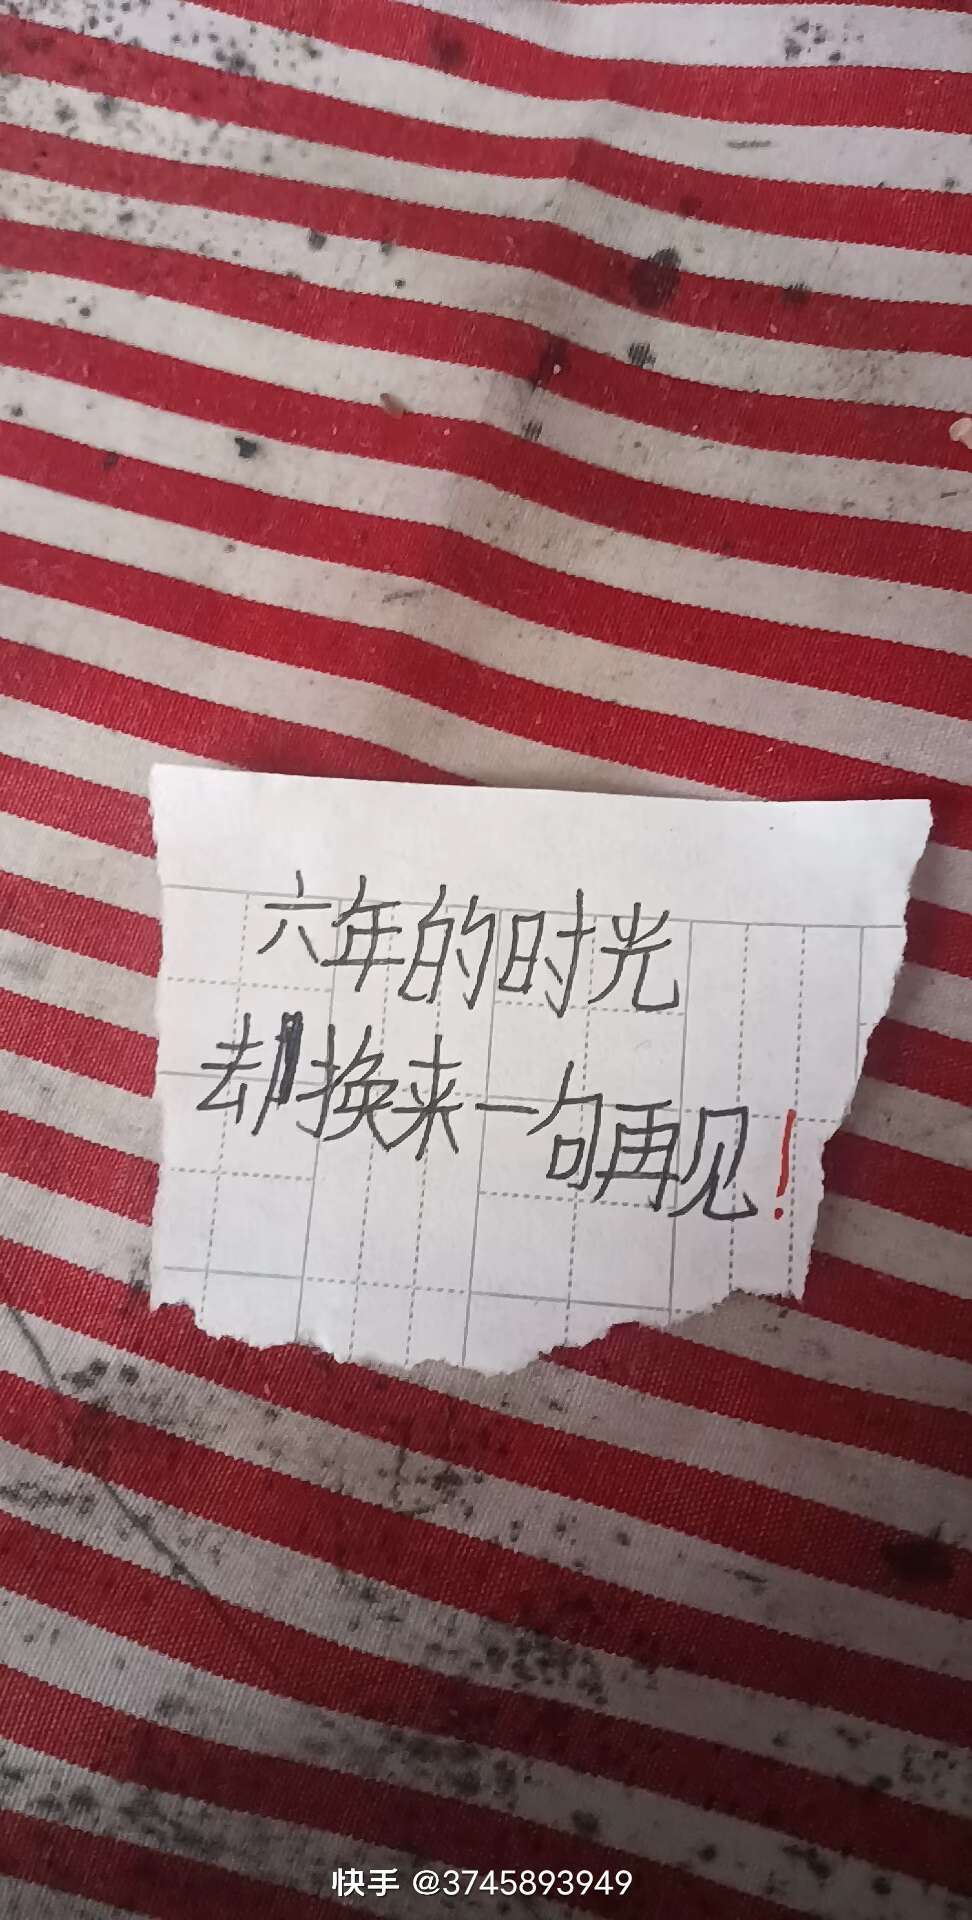 六年的时光
却换来一句再见!
快手 @3745893949